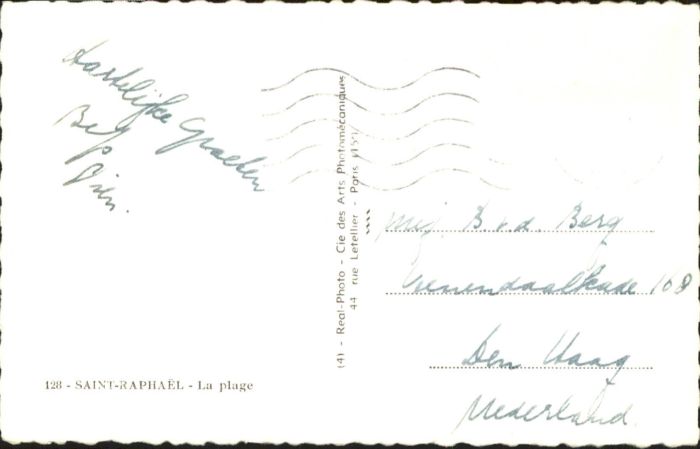 Hartelijke Groeten
Bep
Dien.
128 - SAINT-RAPHAËL - La plage
(4) - Real-Photo - Cie des Arts Photomécaniques
44 rue Letellier - Paris (15e)
mej. B v.d. Berg
108
Den Haag
Nederland.